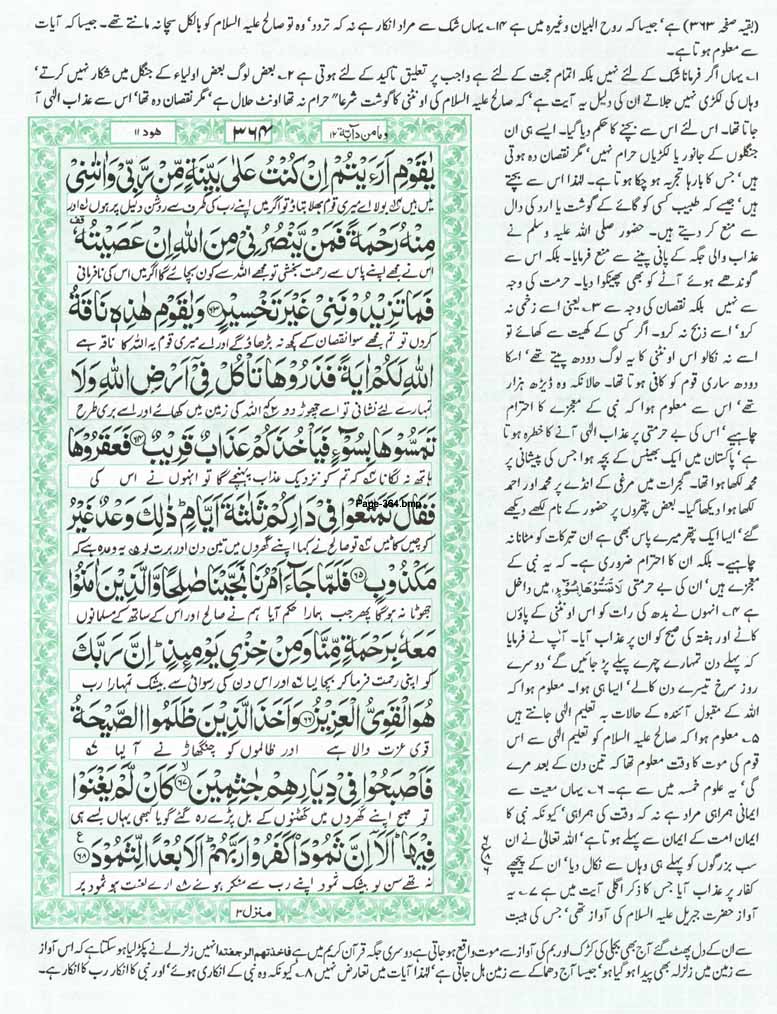 (بقیہ صفحہ ۳۶۳) ہے' جیسا کہ روح البیان وغیرہ میں ہے ۱۴؎ یہاں شک سے مراد انکار ہے نہ کہ تردد' وہ تو صالح علیہ السلام کو بالکل سچا نہ مانتے تھے۔ جیسا کہ آیات
سے معلوم ہوتا ہے۔
۱؎ یہاں اگر فرمانا شک کے لئے نہیں بلکہ اتمام حجت کے لئے ہے واجب پر تعلیق تاکید کے لئے ہوتی ہے ۲؎ بعض لوگ بعض اولیاء کے جنگل میں شکار نہیں کرتے'
وہاں کی لکڑی نہیں جلاتے ان کی دلیل یہ آیت ہے' کہ صالح علیہ السلام کی اونٹنی کا گوشت شرعاً حرام نہ تھا اونٹ حلال ہے' مگر نقصان دہ تھا' اس سے عذاب الٰہی آ
جاتا تھا۔ اس لئے اس سے بچنے کا حکم دیا گیا۔ ایسے ہی ان
جنگلوں کے جانور یا لکڑیاں حرام نہیں' مگر نقصان دہ ہوتی
ہیں' جس کا بارہا تجربہ ہو چکا ہوتا ہے۔ لہٰذا اس سے بچتے
ہیں' جیسے کہ طبیب کسی کو گائے کے گوشت یا ارد کی دال
سے منع کر دیتے ہیں۔ حضور صلی اللہ علیہ وسلم نے
عذاب والی جگہ کے پانی پینے سے منع فرمایا۔ بلکہ اس سے
گوندھے ہوئے آٹے کو بھی پھینکوا دیا۔ حرمت کی وجہ
سے نہیں بلکہ نقصان کی وجہ سے ۳؎ یعنی اسے زخمی نہ
کرو' اسے ذبح نہ کرو۔ اگر کسی کے کھیت سے کھائے تو
اسے نہ نکالو اس اونٹنی کا یہ لوگ دودھ پیتے تھے' اسکا
دودھ ساری قوم کو کافی ہوتا تھا۔ حالانکہ وہ ڈیڑھ ہزار
تھے' اس سے معلوم ہوا کہ نبی کے معجزے کا احترام
چاہیے' اس کی بے حرمتی پر عذاب الٰہی آنے کا خطرہ ہوتا
ہے' پاکستان میں ایک بھینس کے بچہ ہوا جس کی پیشانی پر
محمد لکھا ہوا تھا۔ گجرات میں مرغی کے انڈے پر محمد اور احمد
لکھا ہوا دیکھا گیا۔ بعض پتھروں پر حضور کے نام لکھے دیکھے
گئے' ایسا ایک پتھر میرے پاس بھی ہے ان تبرکات کو مٹانا نہ
چاہیے۔ بلکہ ان کا احترام ضروری ہے۔ کہ یہ نبی کے
معجزے ہیں' ان کی بے حرمتی لَا تَمَسُّوْهَا بِسُوْٓءٍ میں داخل
ہے ۴؎ انہوں نے بدھ کی رات کو اس اونٹنی کے پاؤں
کاٹے اور ہفتہ کی صبح کو ان پر عذاب آیا۔ آپ نے فرمایا
کہ پہلے دن تمہارے چہرے پیلے پڑ جائیں گے' دوسرے
روز سرخ تیسرے دن کالے' ایسا ہی ہوا۔ معلوم ہوا کہ
اللہ کے مقبول آئندہ کے حالات بہ تعلیم الٰہی جانتے ہیں
۵؎ معلوم ہوا کہ صالح علیہ السلام کو تعلیم الٰہی سے اس
قوم کی موت کا وقت معلوم تھا کہ تین دن کے بعد مرے
گی' یہ علوم خمسہ میں سے ہے۔ ۶؎ یہاں معیت سے
ایمانی ہمراہی مراد ہے نہ کہ وقت کی ہمراہی' کیونکہ نبی کا
ایمان امت کے ایمان سے پہلے ہوتا ہے' اللہ تعالیٰ نے ان
سب بزرگوں کو پہلے ہی وہاں سے نکال دیا' ان کے پیچھے
کفار پر عذاب آیا جس کا ذکر اگلی آیت میں ہے ۷؎ یہ
آواز حضرت جبریل علیہ السلام کی آواز تھی' جس کی ہیبت
ومامن دآبۃ ۱۲
۳۶۴
ھود ۱۱
يٰقَوْمِ اَرَءَيْتُمْ اِنْ كُنْتُ عَلٰى بَيِّنَةٍ مِّنْ رَّبِّيْ وَاٰتٰىنِيْ
میں ہیں بولا اے میری قوم بھلا بتاؤ تو اگر میں اپنے رب کی طرف سے روشن دلیل پر ہوں اور
مِنْهُ رَحْمَةً فَمَنْ يَّنْصُرُنِيْ مِنَ اللّٰهِ اِنْ عَصَيْتُهٗ
اس نے مجھے اپنے پاس سے رحمت بخشی تو مجھے اللہ سے کون بچائے گا اگر میں اس کی نافرمانی
فَمَا تَزِيْدُوْنَنِيْ غَيْرَ تَخْسِيْرٍ ۶۳ وَيٰقَوْمِ هٰذِهٖ نَاقَةُ
کروں تو تم مجھے سوا نقصان کے کچھ نہ بڑھاؤ گے اور اے میری قوم یہ اللہ کا ناقہ ہے
اللّٰهِ لَكُمْ اٰيَةً فَذَرُوْهَا تَاْكُلْ فِيْٓ اَرْضِ اللّٰهِ وَلَا
تمہارے لئے نشانی تو اسے چھوڑ دو کہ اللہ کی زمین میں کھائے اور اسے بری طرح
تَمَسُّوْهَا بِسُوْٓءٍ فَيَاْخُذَكُمْ عَذَابٌ قَرِيْبٌ ۶۴ فَعَقَرُوْهَا
ہاتھ نہ لگانا کہ تم کو نزدیک عذاب پہنچے گا تو انہوں نے اس کی
فَقَالَ تَمَتَّعُوْا فِيْ دَارِكُمْ ثَلٰثَةَ اَيَّامٍ ذٰلِكَ وَعْدٌ غَيْرُ
Page-364.bmp
کونچیں کاٹیں تو صالح نے کہا اپنے گھروں میں تین دن اور برت لو یہ وعدہ ہے کہ
مَكْذُوْبٍ ۶۵ فَلَمَّا جَآءَ اَمْرُنَا نَجَّيْنَا صٰلِحًا وَّالَّذِيْنَ اٰمَنُوْا
جھوٹا نہ ہوگا پھر جب ہمارا حکم آیا ہم نے صالح اور اس کے ساتھ کے مسلمانوں
مَعَهٗ بِرَحْمَةٍ مِّنَّا وَمِنْ خِزْيِ يَوْمِئِذٍ اِنَّ رَبَّكَ
کو اپنی رحمت فرما کر بچا لیا اور اس دن کی رسوائی سے بیشک تمہارا رب
هُوَ الْقَوِيُّ الْعَزِيْزُ ۶۶ وَاَخَذَ الَّذِيْنَ ظَلَمُوا الصَّيْحَةُ
قوی عزت والا ہے اور ظالموں کو چنگھاڑ نے آ لیا
فَاَصْبَحُوْا فِيْ دِيَارِهِمْ جٰثِمِيْنَ ۶۷ كَاَنْ لَّمْ يَغْنَوْا
تو صبح اپنے گھروں میں گھٹنوں کے بل پڑے رہ گئے گویا کبھی یہاں بسے ہی
فِيْهَا اَلَآ اِنَّ ثَمُوْدَا۟ كَفَرُوْا رَبَّهُمْ اَلَا بُعْدًا لِّثَمُوْدَ ۶۸
نہ تھے سن لو بیشک ثمود اپنے رب سے منکر ہوئے ارے لعنت ہو ثمود پر
منزل ۳
سے ان کے دل پھٹ گئے آج بھی بجلی کی کڑک اور بم کی آواز سے موت واقع ہو جاتی ہے دوسری جگہ قرآن کریم میں ہے فاخذتھم الرجفتہ انہیں زلزلے نے پکڑ لیا ہو سکتا ہے کہ اس آواز
سے زمین میں زلزلہ بھی پیدا ہو گیا ہو' جیسا آج دھماکے سے زمین ہل جاتی ہے' لہٰذا آیات میں تعارض نہیں ۸؎ کیونکہ وہ نبی کے انکاری ہوئے' اور نبی کا انکار رب کا انکار ہے۔